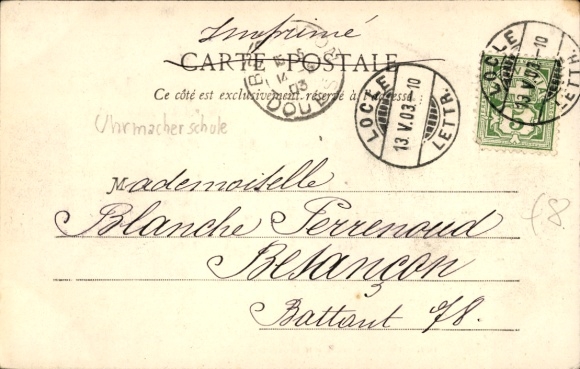 Imprimé
CARTE POSTALE
Ce côté est exclusivement réservé à l'adresse
LOCLE
13.V.03.-10
LETTR.
LOCLE
13.V.03.-10
LETTR.
5
Uhrmacherschule
Mademoiselle
Blanche Perrenoud
Besançon
Battant 78.